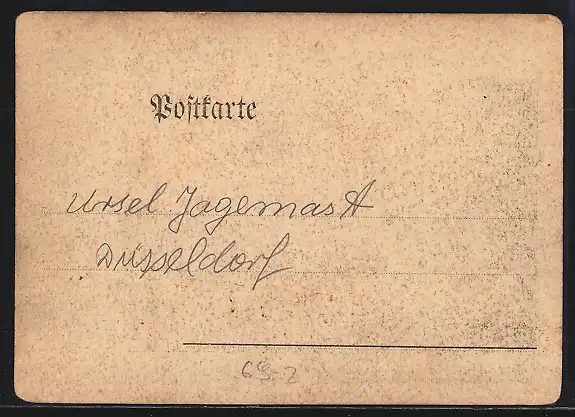 Postkarte
Ursel Jagemast
Düsseldorf